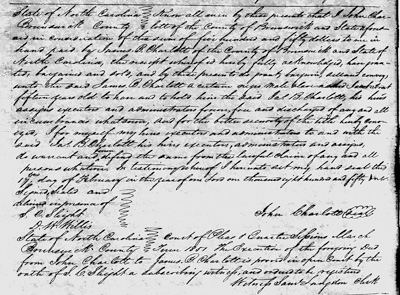 State of North Carolina Know all men by these presents that I John Char-
lotte of the County of Brunswick and State afore-
said in consideration of the sum of five hundred and fifty dollars to me in
hand paid by James B. Charlotte of the County of Brunswick and State of
North Carolina, the receipt whereof is hereby fully acknowledged, have gran-
ted, bargained and sold, and by these presents do grant, bargain,
unto the said James B. Charlotte a certain negro about
fifteen years old to have and to hold him the said Jas. B. Charlotte, his
executors and administrators, forever and discharged of and all
incumbrances whatsoever, and for the better security of the title hereby conv-
eyed, I for myself my heirs executors and administrators to and with the
said Jas. B. Charlotte his heirs executors, administrators and assigns,
do warrant and defend the same from the lawful claim of any and all
persons whatever. In testimony whereof I hereunto set my hand and seal this
day of February in the year of our Lord one thousand eight hundred and fifty
Signed, sealed and
delivered in presence of
S. C. Slight
D. W. Willis
John Charlotte Seal
State of North Carolina Court of Pleas &amp; Quarter Sessions March
Brunswick County Term The Execution of the foregoing deed
from John Charlotte to James B. Charlotte is proved in open Court by the
oath of S. C. Slight a subscribing witness, and ordered to be registered
Witness Saml Langdon Clerk